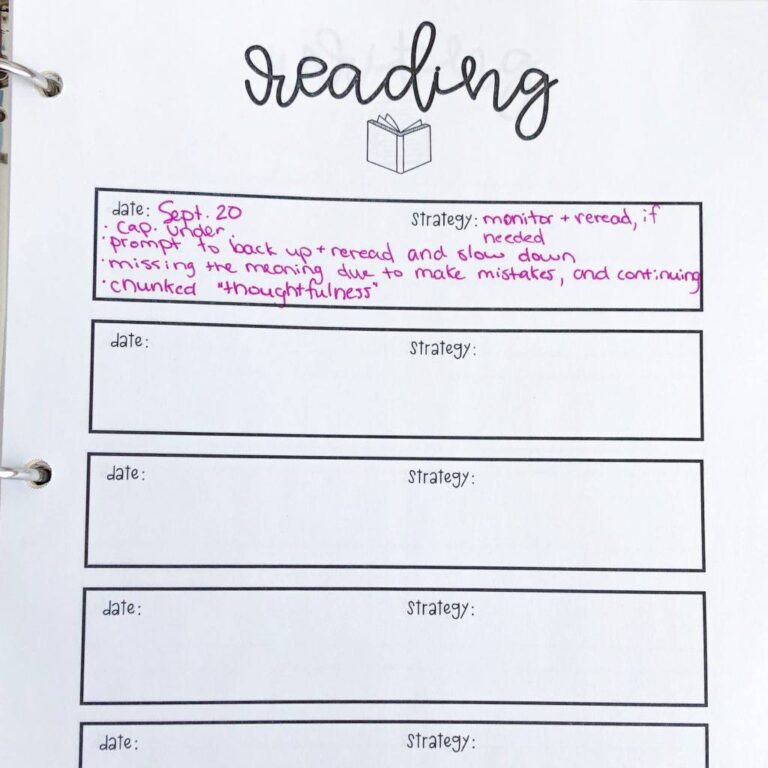 reading
date: Sept. 20 strategy: monitor + reread, if
needed
· cap. under.
· prompt to back up + reread and slow down
· missing the meaning due to make mistakes, and continuing
· chunked "thoughtfulness"
date: strategy:
date: strategy:
date: strategy:
date: strategy: